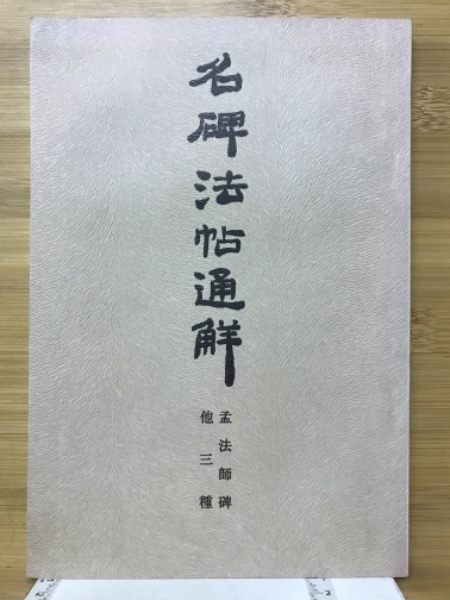 名碑法帖通解
孟法師碑
他三種